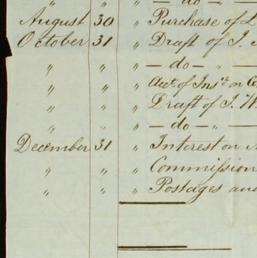 " " " — do — "
August 30 " Purchase of
October 31 " Draft of J.
" " " — do — "
" " " Acct. of Inst. on
" " " Draft of J. W
" " " — do — "
December 31 " Interest on
" " " Commission
" " " Postages and